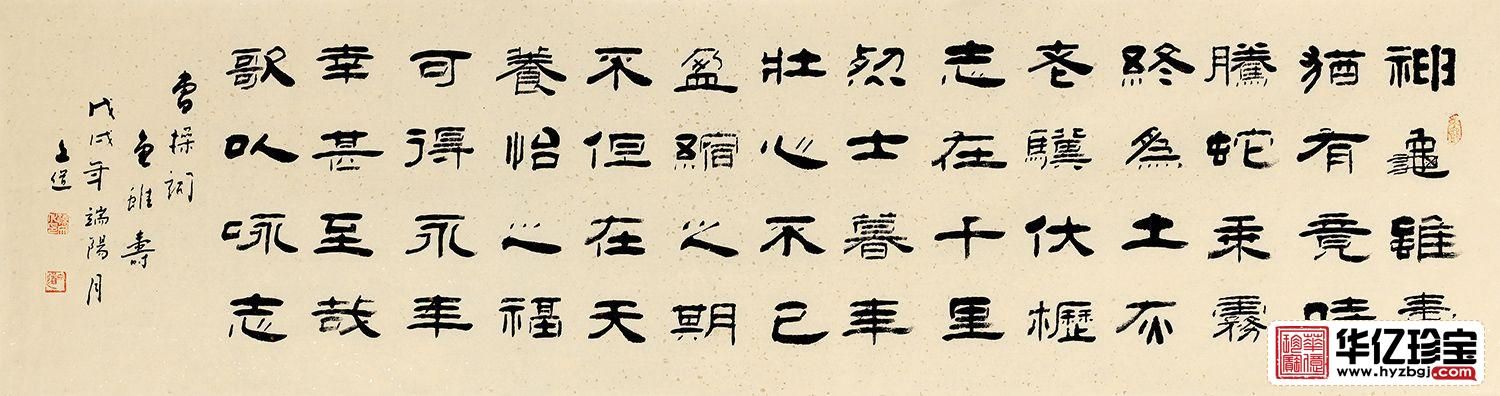 神龜雖壽
猶有竟時
騰蛇乘霧
終為土灰
老驥伏櫪
志在千里
烈士暮年
壯心不已
盈縮之期
不但在天
養怡之福
可得永年
幸甚至哉
歌以咏志
曹操詞
龜雖壽
戊戌年端陽月
华亿珍宝
www.hyzbgj.com